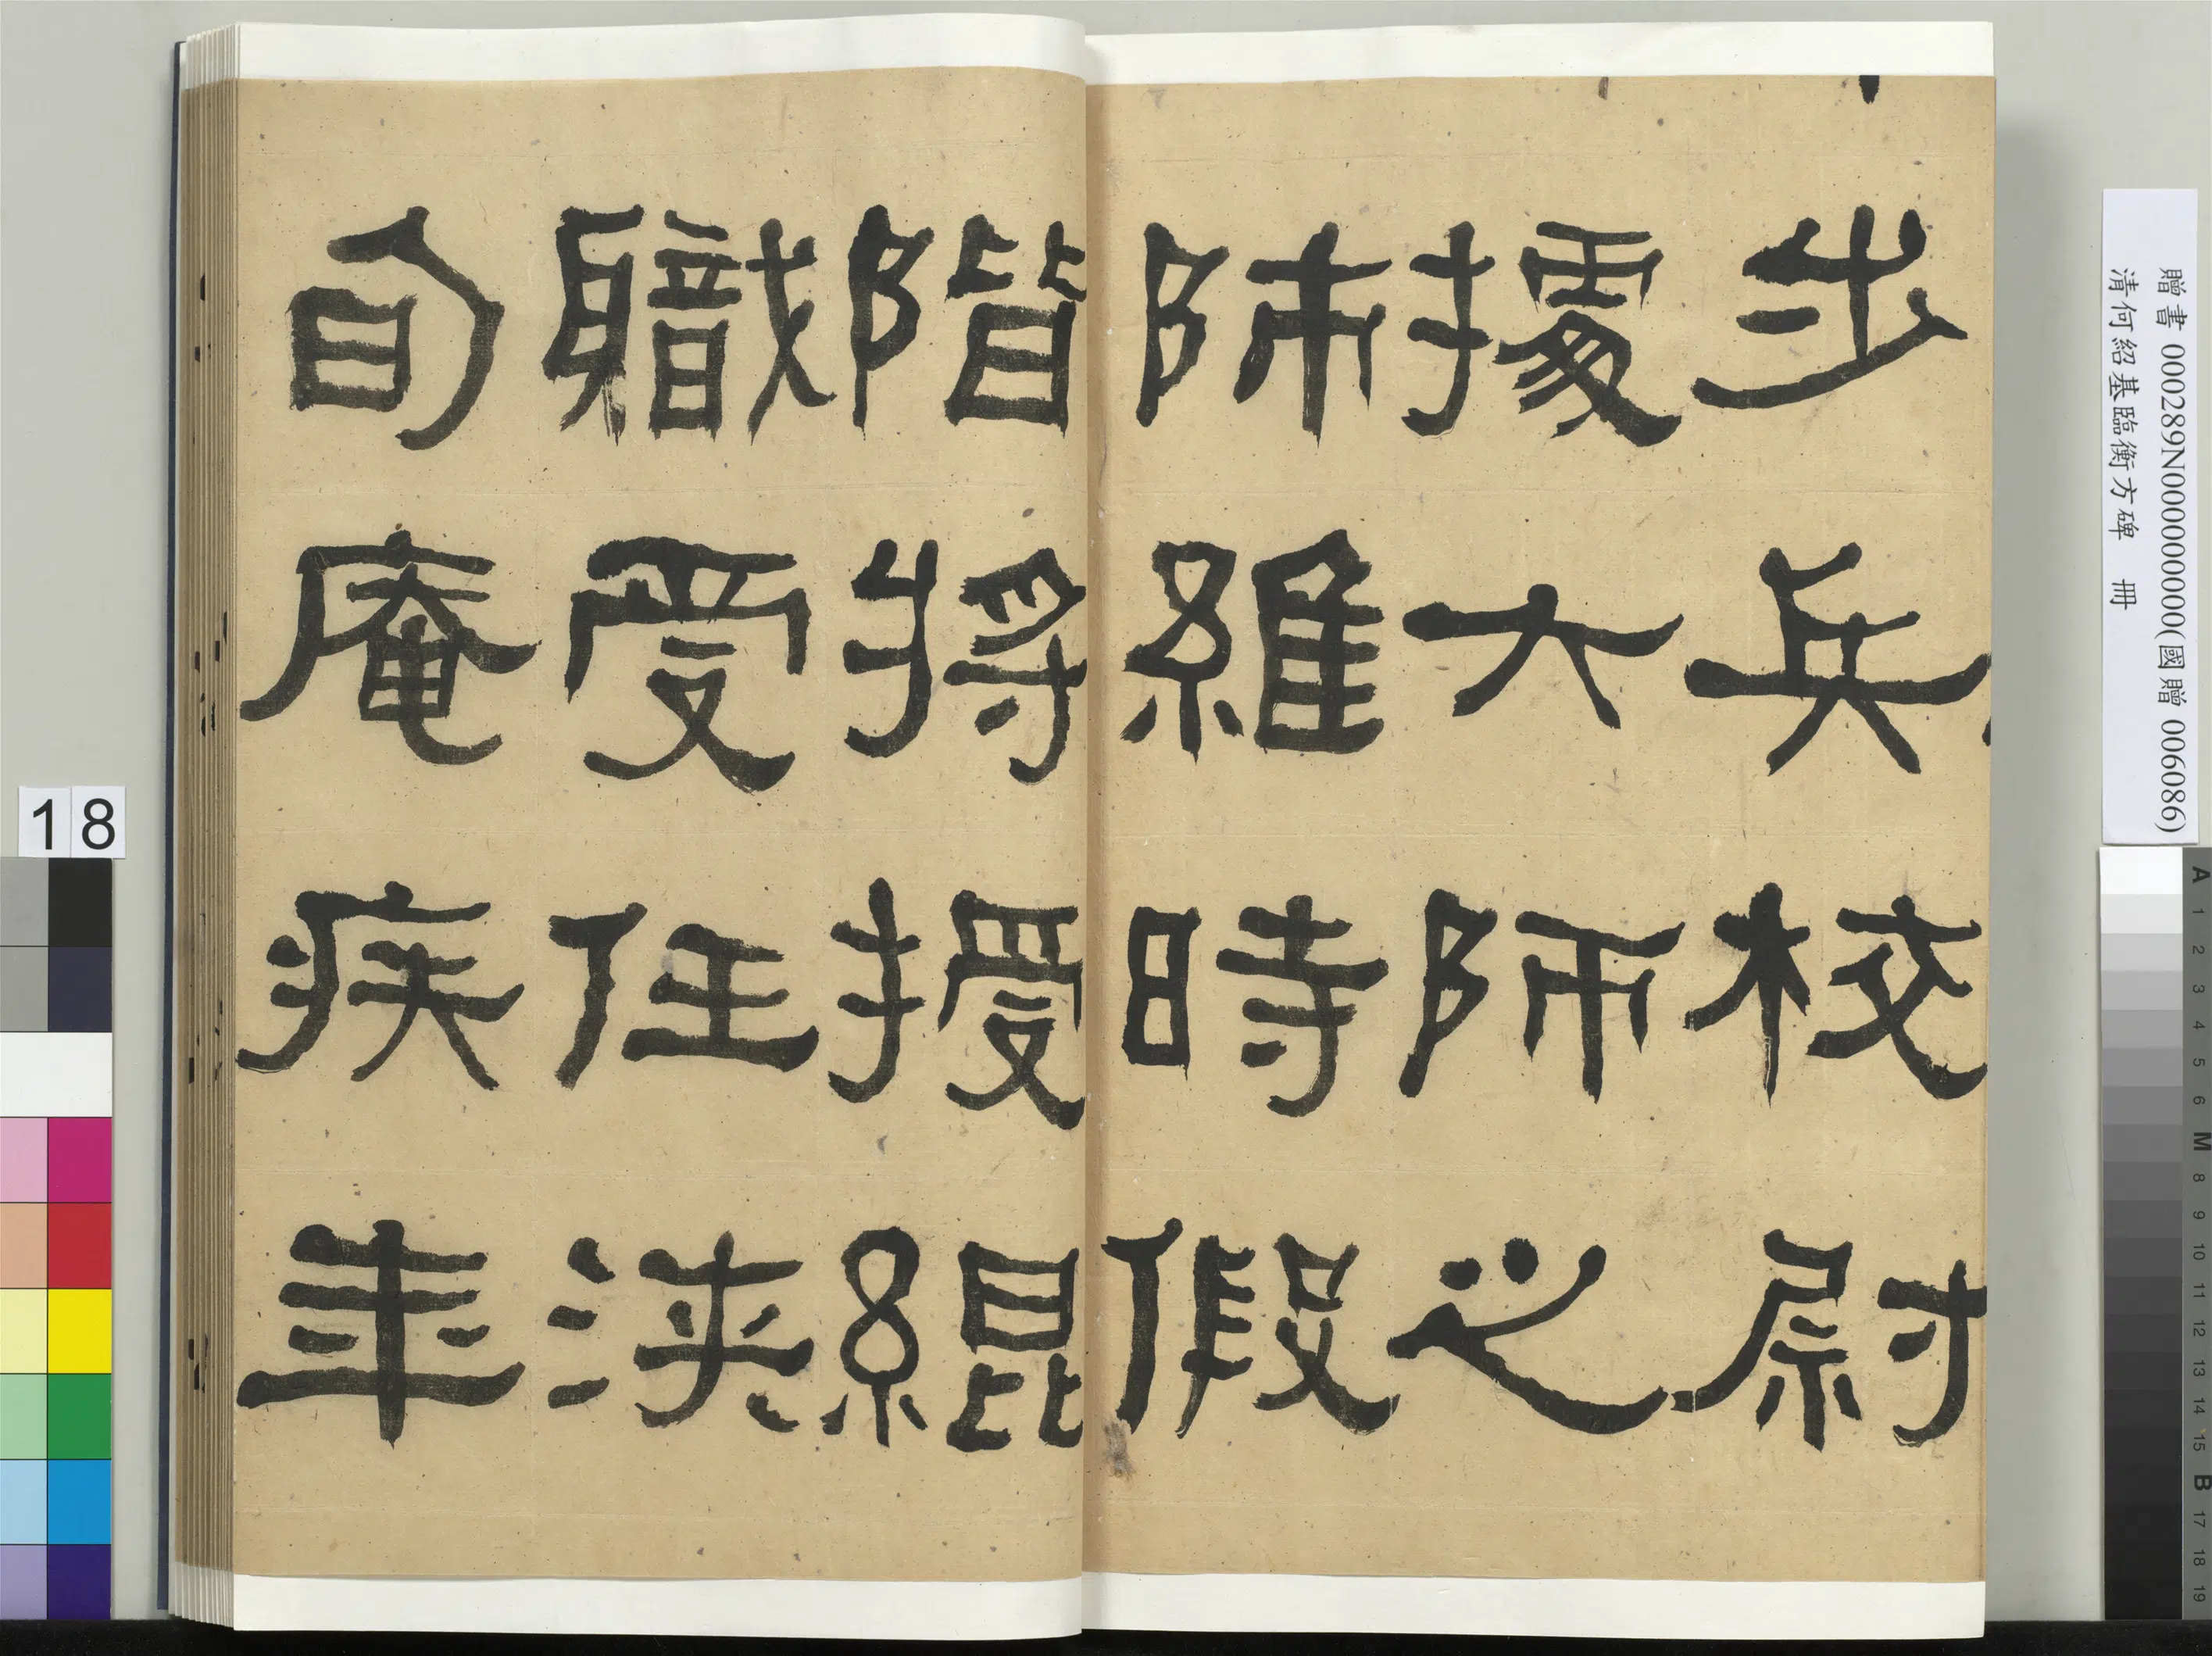 步兵校尉
據大師之
師維時假
階將授緄
職受任浹
旬庵疾年
贈書 000289N000000000(國贈 006086)
清何紹基臨衡方碑 冊
18
A 1 2 3 4 5 6 M 8 9 10 11 12 13 14 15 B 17 18 19